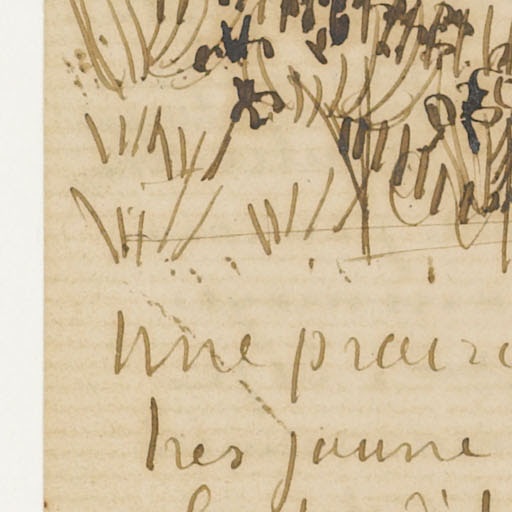 Une prairi
tres jaune